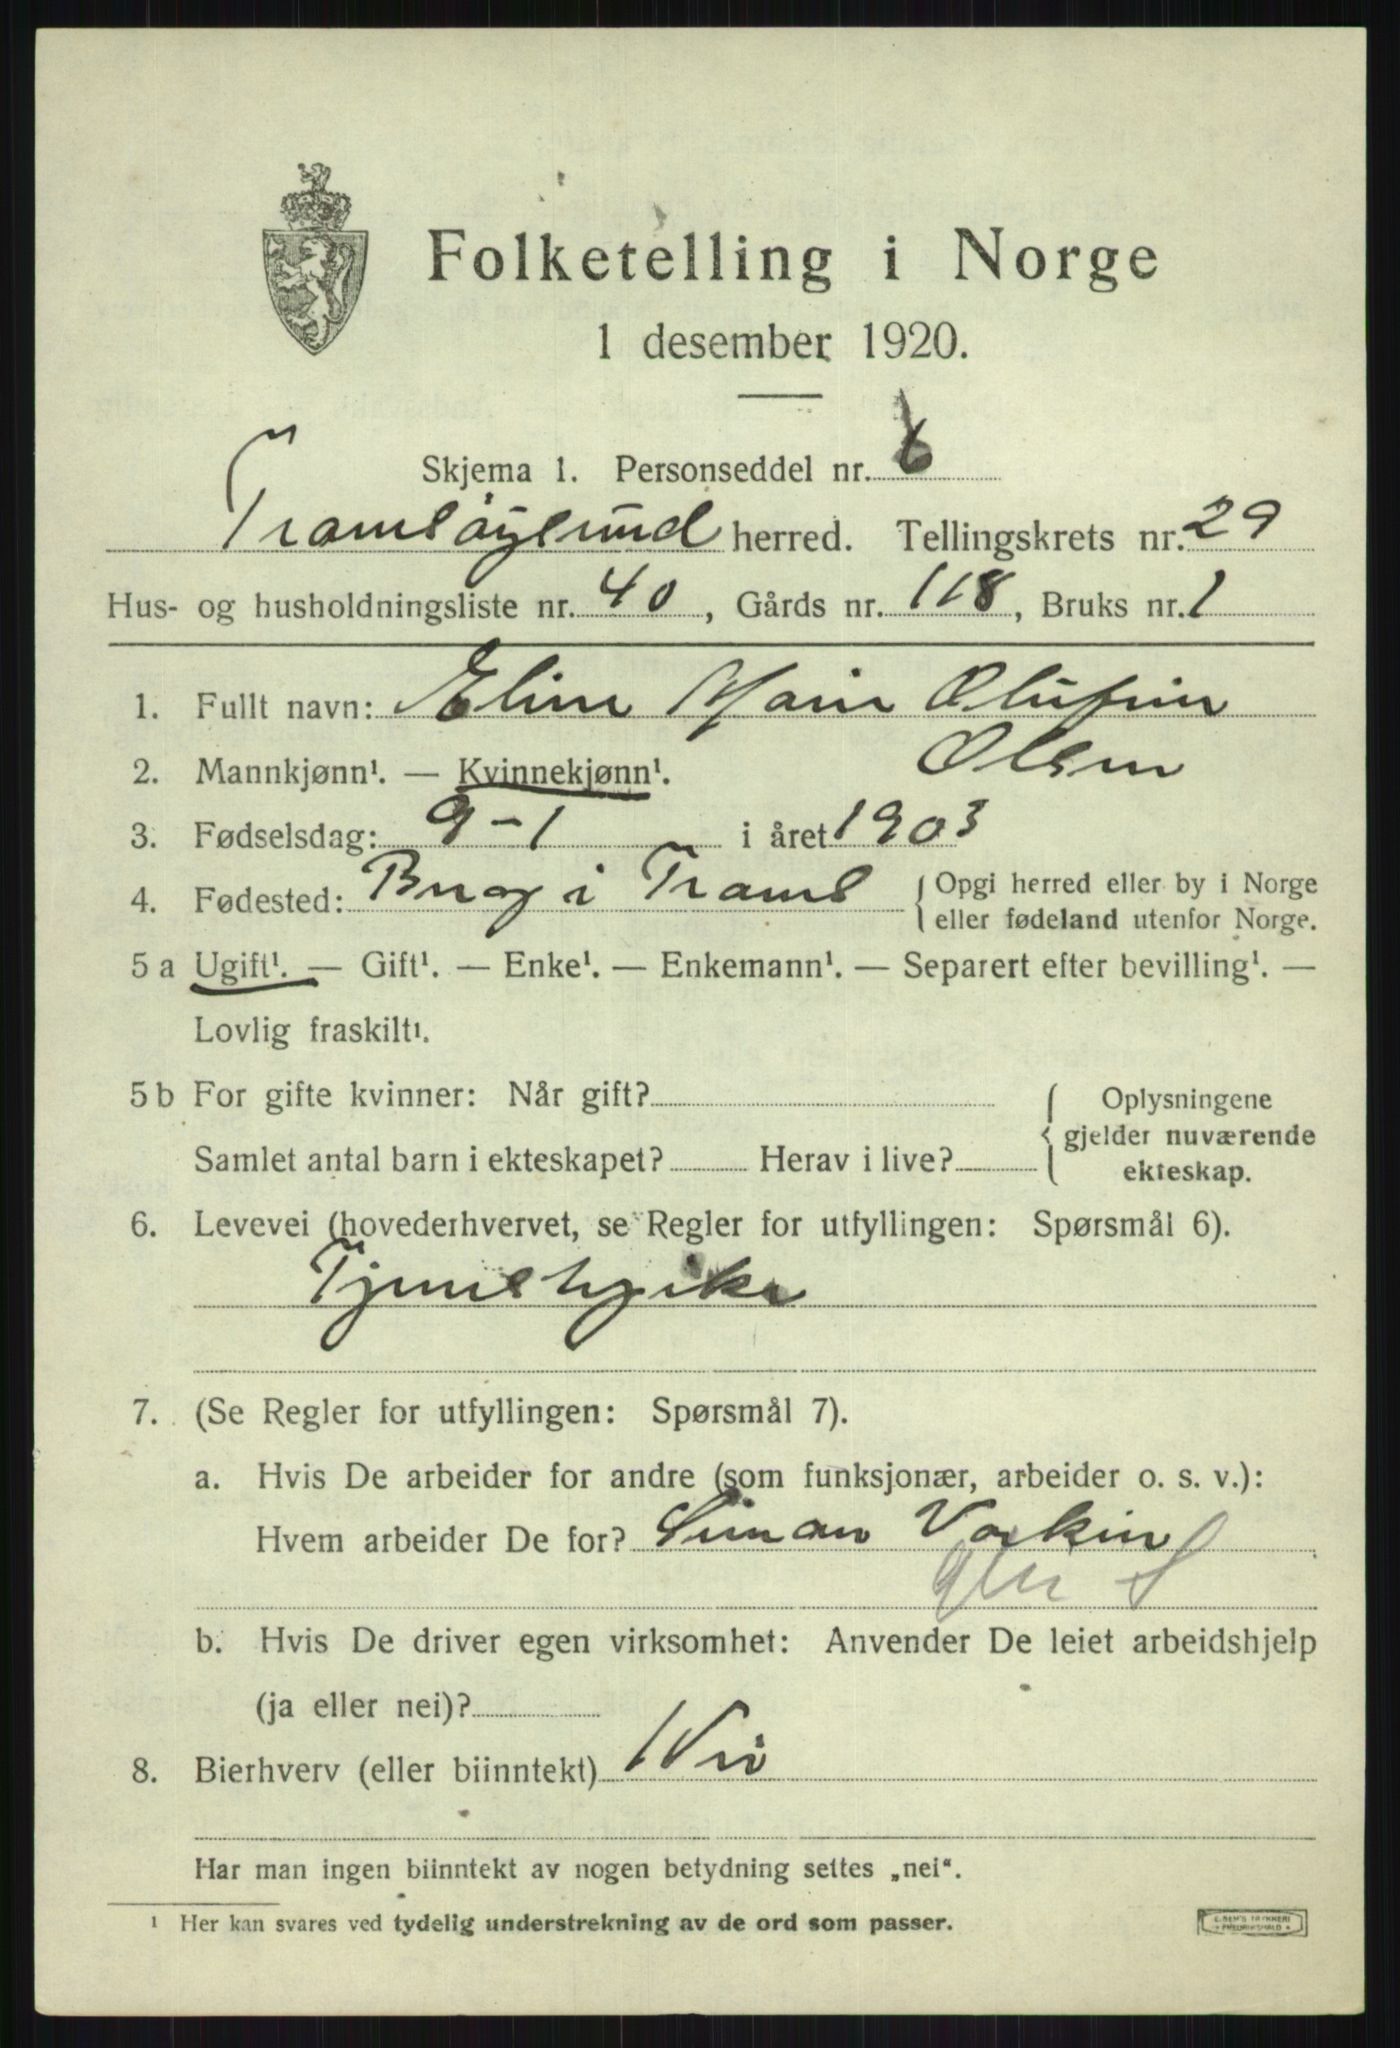 Folketelling i Norge
1 desember 1920.
Skjema 1. Personseddel nr. 6
Tromsøysund herred. Tellingskrets nr. 29
Hus- og husholdningsliste nr. 40, Gårds nr. 118, Bruks nr. 1
1. Fullt navn: Eline Marie Olufine
Olsen
2. Mannkjønn¹. — Kvinnekjønn¹.
3. Fødselsdag: 9-1 i året 1903
4. Fødested: i Troms { Opgi herred eller by i Norge
eller fødeland utenfor Norge.
5 a Ugift¹. — Gift¹. — Enke¹. — Enkemann¹. — Separert efter bevilling¹. —
Lovlig fraskilt¹.
5 b For gifte kvinner: Når gift?
Samlet antal barn i ekteskapet? Herav i live?
{ Oplysningene
gjelder nuværende
ekteskap.
6. Levevei (hovederhvervet, se Regler for utfyllingen: Spørsmål 6).
7. (Se Regler for utfyllingen: Spørsmål 7).
a. Hvis De arbeider for andre (som funksjonær, arbeider o. s. v.):
Hvem arbeider De for? Simon
b. Hvis De driver egen virksomhet: Anvender De leiet arbeidshjelp
(ja eller nei)?
8. Bierhverv (eller biinntekt) Nei
Har man ingen biinntekt av nogen betydning settes „nei“.
¹ Her kan svares ved tydelig understrekning av de ord som passer.